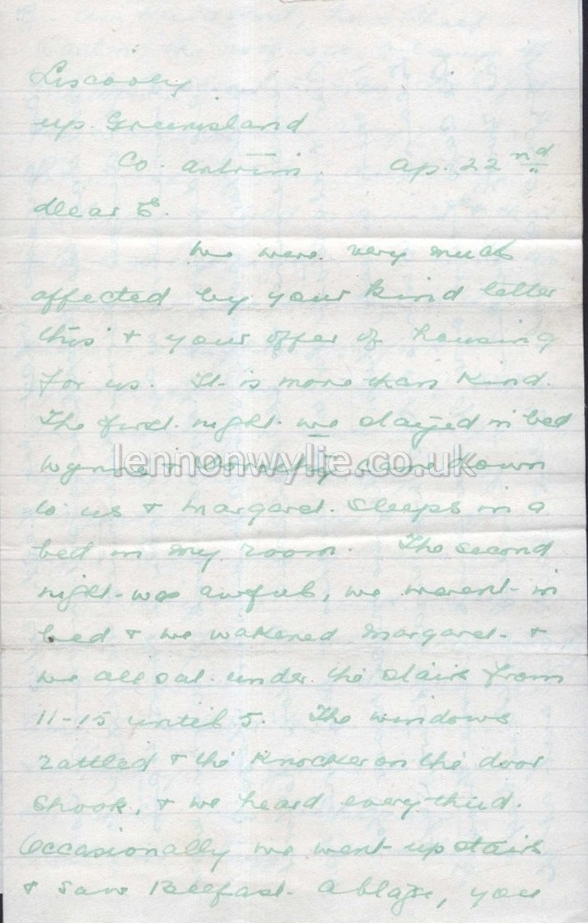 Liscooley
up. Greenisland
Co. Antrim. Ap. 22nd
dear E.
We were very much
affected by your kind letter
this & your offer of housing
for us. It is more than kind.
The first night we stayed in bed
& Dorothy came down
to us & Margaret sleeps in a
bed in my room. The second
night was awful, we weren't in
bed & we wakened Margaret &
we all sat under the stairs from
11-15 until 5. The windows
rattled & the knocker on the door
shook, & we heard every thud.
Occasionally we went upstairs
& saw Belfast ablaze, you
lennonwylie.co.uk